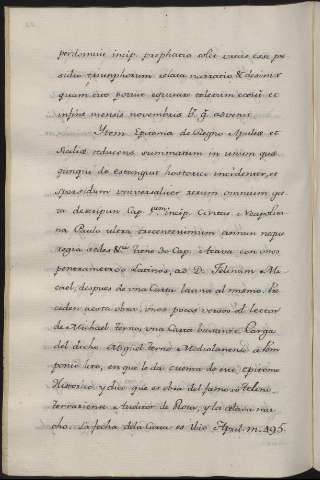 perdomuit incip. prephacio solet varie esse pre
sidio triumphorum celata narratio & desinit
quam cito potuit equitare toletum et
infine mensis novembris
Ytem Epitoma de Regno Apuliæ et
Siciliæ reducens summatim in unum quæ
qunque de extanguet hostorici incidenter, et
sparsidum universaliter rerum omnium ges
ta descripun Cap. incip. Civitas Neapolita
na Paulo ultra trecentesimum annum nepo
regia sedes &ª tiene 30 Cap. Acava con unos
penerametros Latinos, ad D. Felinum Ma
cael, despues de una Carta latina al mismo. Pre
ceden acosta obra, unos pocos versos al lector
de Michael Ferno, una Carta bastante Larga
del dicho Miguel ferno Mediolanensis a Pom
ponio leto, en que le da cuenta de este epitome
Historico, y dice que es obra del famoso Felino
ferrariense Auditor de Rota, y la alaba mu
cho. La fecha dela Carta es Idib. April. m. 495.